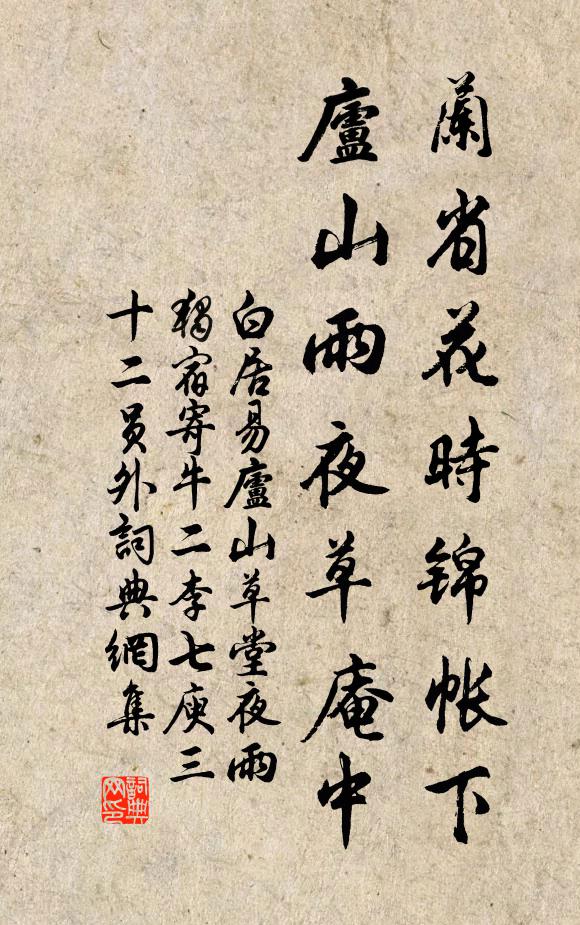 蘭省花時錦帳下
廬山雨夜草庵中
白居易廬山草堂夜雨
獨宿寄牛二李七庾三
十二員外詞典網集
詞典
网印